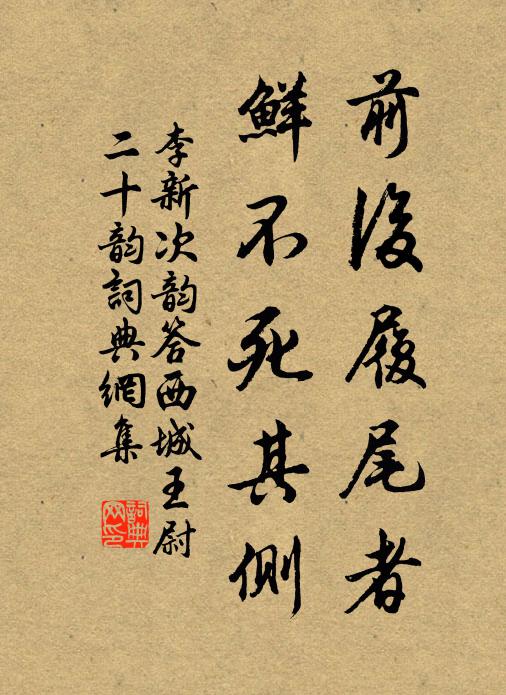 前後履尾者
鮮不死其側
李新次韵答西城王尉
二十韵詞典網集
詞典網印